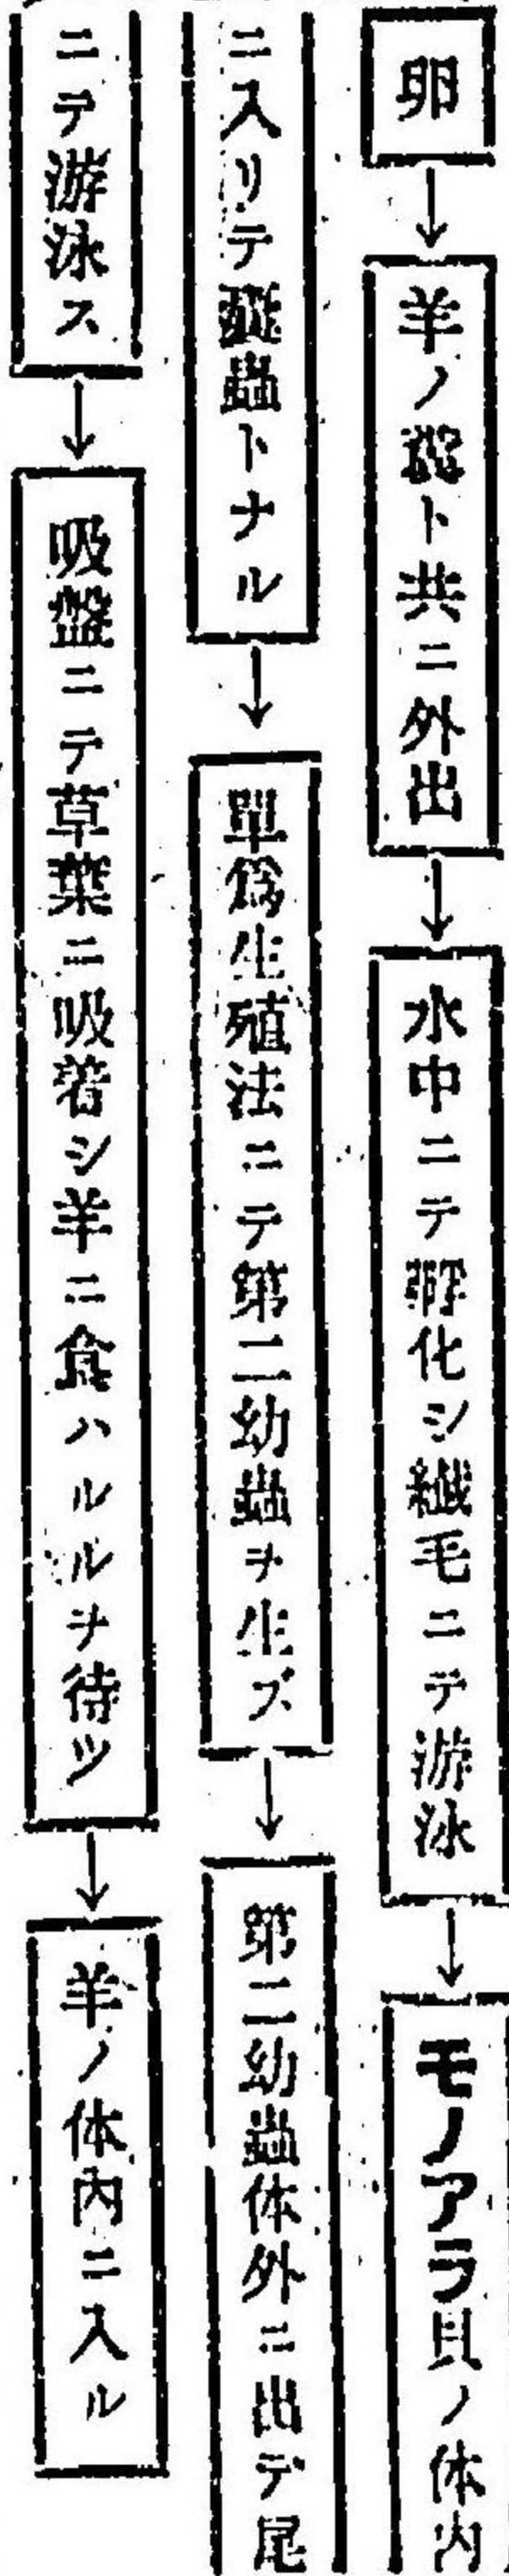 卵→羊ノ糞ト共ニ外出→水中ニテ孵化シ纎毛ニテ游泳→モノアラ貝ノ体内
ニ入リテ蟲トナル→單爲生殖法ニテ第二幼蟲ヲ生ズ→第二幼蟲体外ニ出デ尾
ニテ游泳ス→吸盤ニテ草葉ニ吸着シ羊ニ食ハルルヲ待ツ→羊ノ体内ニ入ル